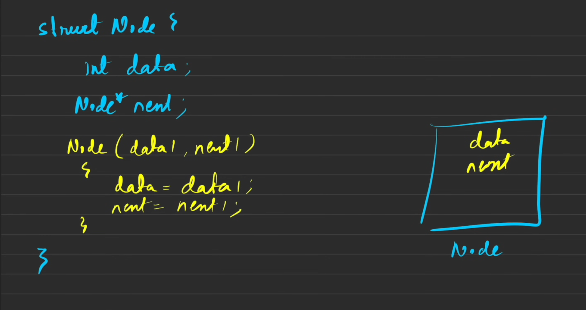 struct Node {
int data;
Node* next;
Node (data1, next1)
{
data = data1;
next = next1;
}
}
data
next
Node